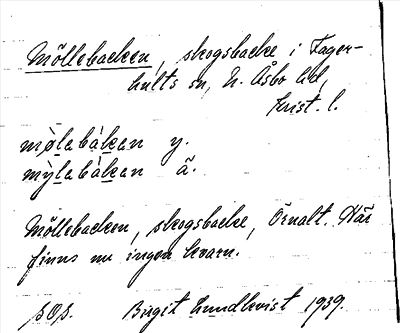 Möllebacken, skogsbacke i Fager-
hults sn, N. Åsbo hd,
Krist. l.
mø̀lebàkan y.
mỳlebàkan ä.
Möllebacken, skogsbacke, Örnalt. Här
finns nu ingen kvarn.
Birgit Lundkvist 1939.